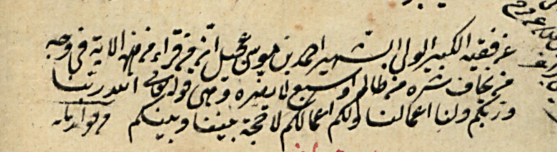 عن فقيه الكبير الولي الشهير احمد بن موسى عجيل ان من قراء هذه الاية في وجه
من يخاف شره من ظالم او سبع لا يضره وهي قوله تعالى الله ربنا
وربكم ولنا اعمالنا ولكم اعمالكم لا حجة بيننا وبينكم